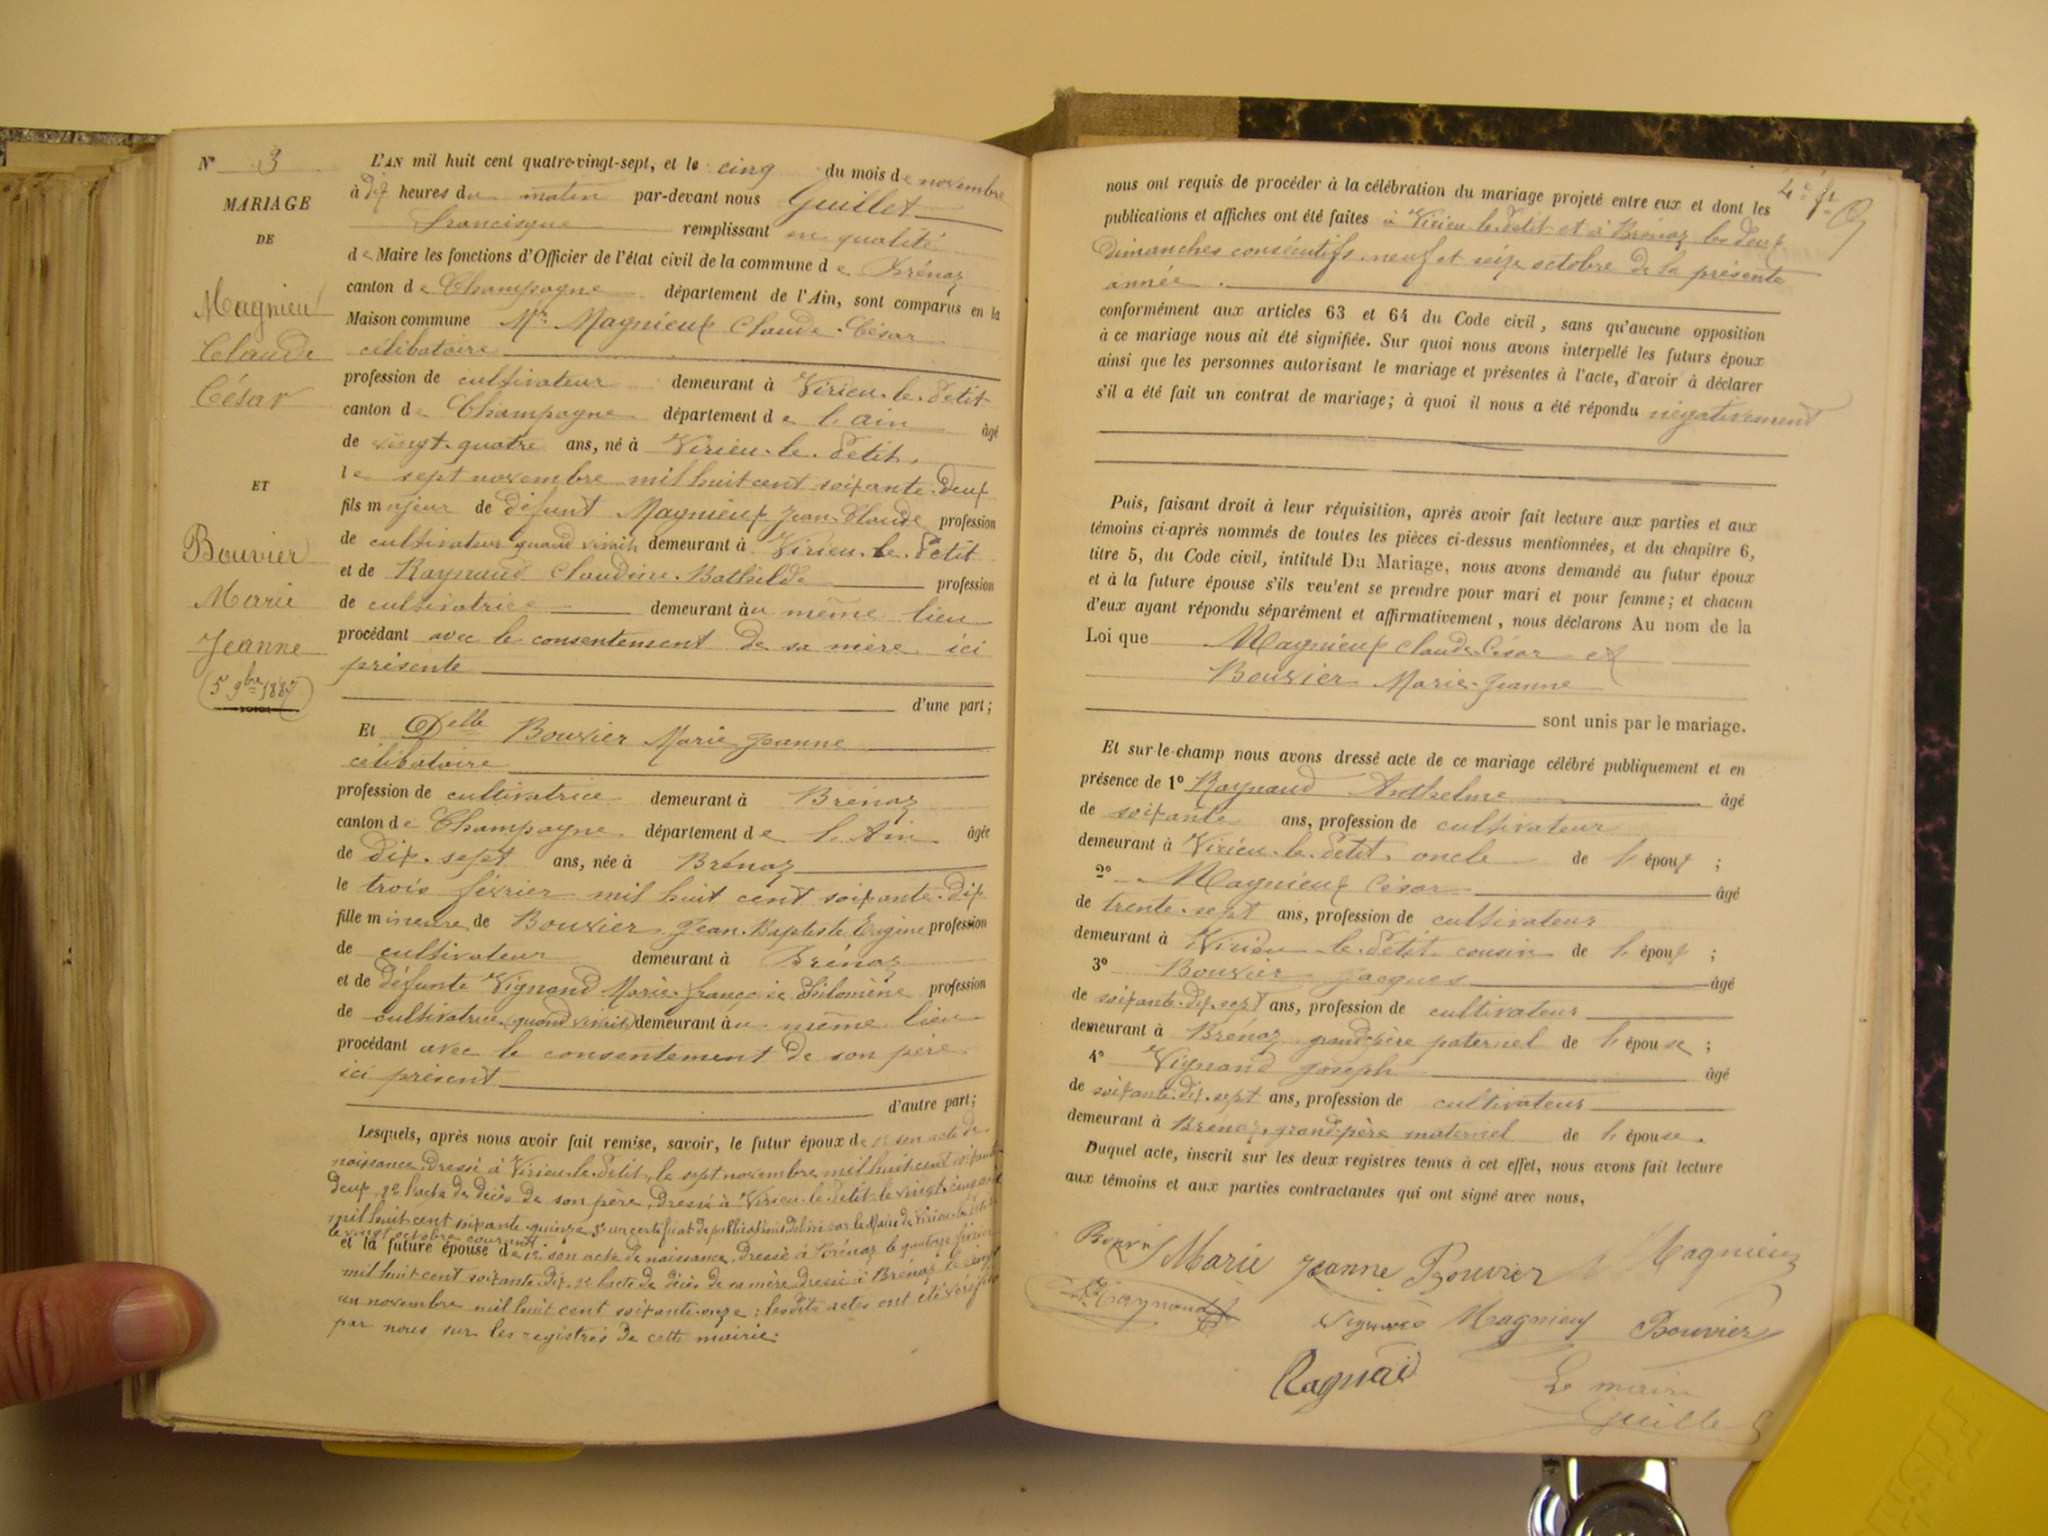 N° 3
MARIAGE
DE
Magnieux
Claude
César
ET
Bouvier
Marie
Jeanne
(5 9bre 1887)
L'AN mil huit cent quatre-vingt-sept, et le cinq du mois de novembre
à dix heures du matin par-devant nous Guillet
francisque remplissant en qualité
de Maire les fonctions d'Officier de l'état civil de la commune de Brénaz
canton de Champagne département de l'Ain, sont comparus en la
Maison commune Mr Magnieux Claude César
célibataire
profession de cultivateur demeurant à Virieu-le-Petit
canton de Champagne département de l'ain âgé
de vingt-quatre ans, né à Virieu-le-Petit,
le sept novembre mil huit cent soixante-deux
fils majeur de défunt Magnieux Jean-Claude profession
de cultivateur quand vivait demeurant à Virieu-le-Petit
et de Raynaud Claudine-Bathilde profession
de cultivatrice demeurant au même lieu
procédant avec le consentement de sa mère ici
présente
d'une part;
Et Delle Bouvier Marie Jeanne
célibataire
profession de cultivatrice demeurant à Brénaz
canton de Champagne département de l'Ain âgée
de dix-sept ans, née à Brénaz
le trois février mil huit cent soixante-dix
fille mineure de Bouvier Jean-Baptiste Eugine profession
de cultivateur demeurant à Brénaz
et de défunte Vignand Marie-françoise Philomène profession
de cultivatrice (quand vivait) demeurant au même lieu
procédant avec le consentement de son père
ici présent
d'autre part;
Lesquels, après nous avoir fait remise, savoir, le futur époux de 1° son acte de
naissance, dressé à Virieu-le-Petit, le sept novembre mil huit cent soixante
deux 2° l'acte de décès de son père, dressé à Virieu-le-Petit le vingt-cinq
mil huit cent soixante-quinze, 3° un certificat de publications délivré par le Maire de Virieu-le-Petit
le vingt octobre courant
et la future épouse de 1° son acte de naissance, dressé à Brénaz le quatorze février
mil huit cent soixante-dix, 2° l'acte de décès de sa mère, dressé à Brénaz le vingt
un novembre mil huit cent soixante-onze; lesdits actes ont été vérifiés
par nous sur les registres de cette mairie.
4e ft
nous ont requis de procéder à la célébration du mariage projeté entre eux et dont les
publications et affiches ont été faites à Virieu-le-Petit et à Brénaz les deux
dimanches consécutifs neuf et seize octobre de la présente
année.
conformément aux articles 63 et 64 du Code civil, sans qu'aucune opposition
à ce mariage nous ait été signifiée. Sur quoi nous avons interpellé les futurs époux
ainsi que les personnes autorisant le mariage et présentes à l'acte, d'avoir à déclarer
s'il a été fait un contrat de mariage; à quoi il nous a été répondu négativement
Puis, faisant droit à leur réquisition, après avoir fait lecture aux parties et aux
témoins ci-après nommés de toutes les pièces ci-dessus mentionnées, et du chapitre 6,
titre 5, du Code civil, intitulé Du Mariage, nous avons demandé au futur époux
et à la future épouse s'ils veu'ent se prendre pour mari et pour femme; et chacun
d'eux ayant répondu séparément et affirmativement, nous déclarons Au nom de la
Loi que Magnieux Claude-César et
Bouvier Marie-Jeanne
sont unis par le mariage.
Et sur-le-champ nous avons dressé acte de ce mariage célébré publiquement et en
présence de 1° Raynaud Anthelme âgé
de soixante ans, profession de cultivateur
demeurant à Virieu-le-Petit, oncle de l'époux;
2° Magnieux César âgé
de trente-sept ans, profession de cultivateur
demeurant à Virieu-le-Petit cousin de l'époux;
3° Bouvier Jacques âgé
de soixante-dix-sept ans, profession de cultivateur
demeurant à Brénaz grand-père paternel de l'épouse;
4° Vignand Joseph âgé
de soixante-dix-sept ans, profession de cultivateur
demeurant à Brénaz, grand-père maternel de l'épouse.
Duquel acte, inscrit sur les deux registres tenus à cet effet, nous avons fait lecture
aux témoins et aux parties contractantes qui ont signé avec nous,
Marie Jeanne Bouvier Magnieux
Raynaud Magnieux Bouvier
Le maire
Guillet